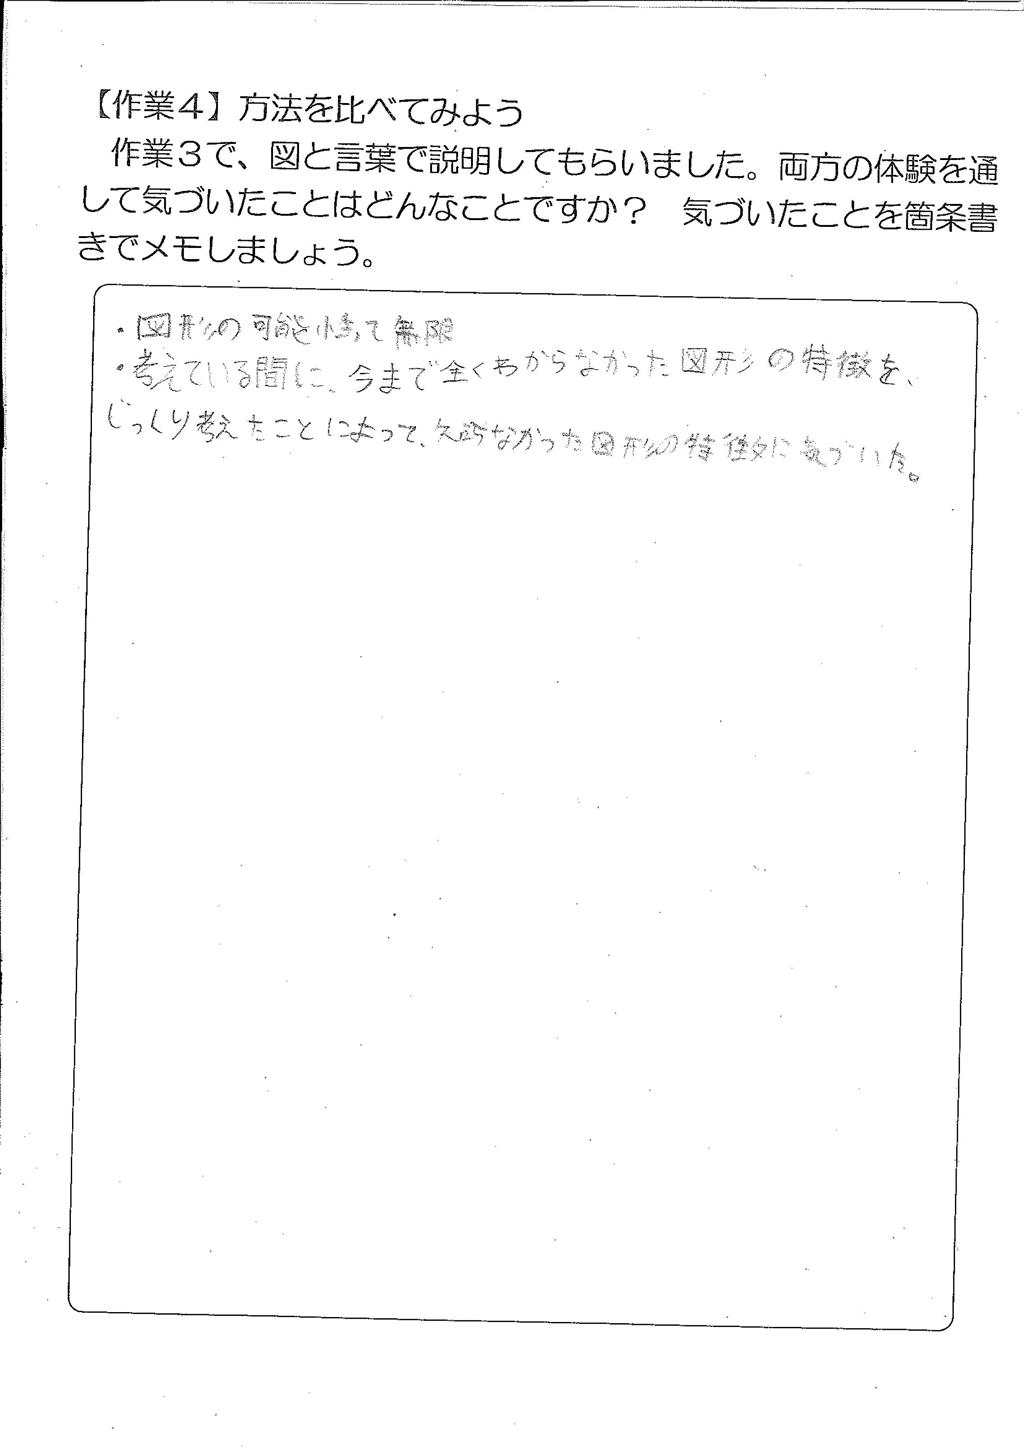 【作業４】方法を比べてみよう
作業３で、図と言葉で説明してもらいました。両方の体験を通
して気づいたことはどんなことですか？　気づいたことを箇条書
きでメモしましょう。
・図形の可能性って無限
・考えている間に、今まで全くわからなかった図形の特徴を、
じっくり考えたことによって、知らなかった図形の特徴に気づいた。